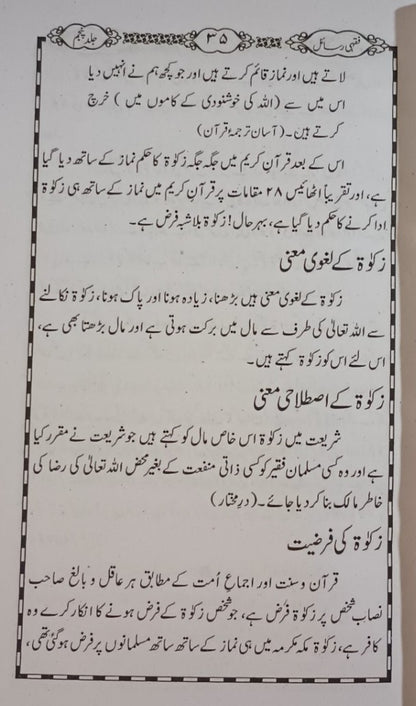 فقہی رسائل
۳۵
جلد پنجم
لاتے ہیں اور نماز قائم کرتے ہیں اور جو کچھ ہم نے انہیں دیا
اس میں سے (اللہ کی خوشنودی کے کاموں میں) خرچ
کرتے ہیں۔ (آسان ترجمۂ قرآن)
اس کے بعد قرآن کریم میں جگہ جگہ زکوٰۃ کا حکم نماز کے ساتھ دیا گیا
ہے، اور تقریباً اٹھائیس ۲۸ مقامات پر قرآن کریم میں نماز کے ساتھ ہی زکوٰۃ
ادا کرنے کا حکم دیا گیا ہے، بہر حال! زکوٰۃ بلا شبہ فرض ہے۔
زکوٰۃ کے لغوی معنی
زکوٰۃ کے لغوی معنی ہیں بڑھنا، زیادہ ہونا اور پاک ہونا، زکوٰۃ نکالنے
سے اللہ تعالیٰ کی طرف سے مال میں برکت ہوتی ہے اور مال بڑھتا بھی ہے،
اس لئے اس کو زکوٰۃ کہتے ہیں۔
زکوٰۃ کے اصطلاحی معنی
شریعت میں زکوٰۃ اس خاص مال کو کہتے ہیں جو شریعت نے مقرر کیا
ہے اور وہ کسی مسلمان فقیر کو کسی ذاتی منفعت کے بغیر محض اللہ تعالیٰ کی رضا کی
خاطر مالک بنا کر دیا جائے۔ (درمختار)
زکوٰۃ کی فرضیت
قرآن و سنت اور اجماعِ اُمت کے مطابق ہر عاقل و بالغ صاحب
نصاب شخص پر زکوٰۃ فرض ہے، جو شخص زکوٰۃ کے فرض ہونے کا انکار کرے وہ
کافر ہے، زکوٰۃ مکہ مکرمہ میں ہی نماز کے ساتھ ساتھ مسلمانوں پر فرض ہوگئی تھی،